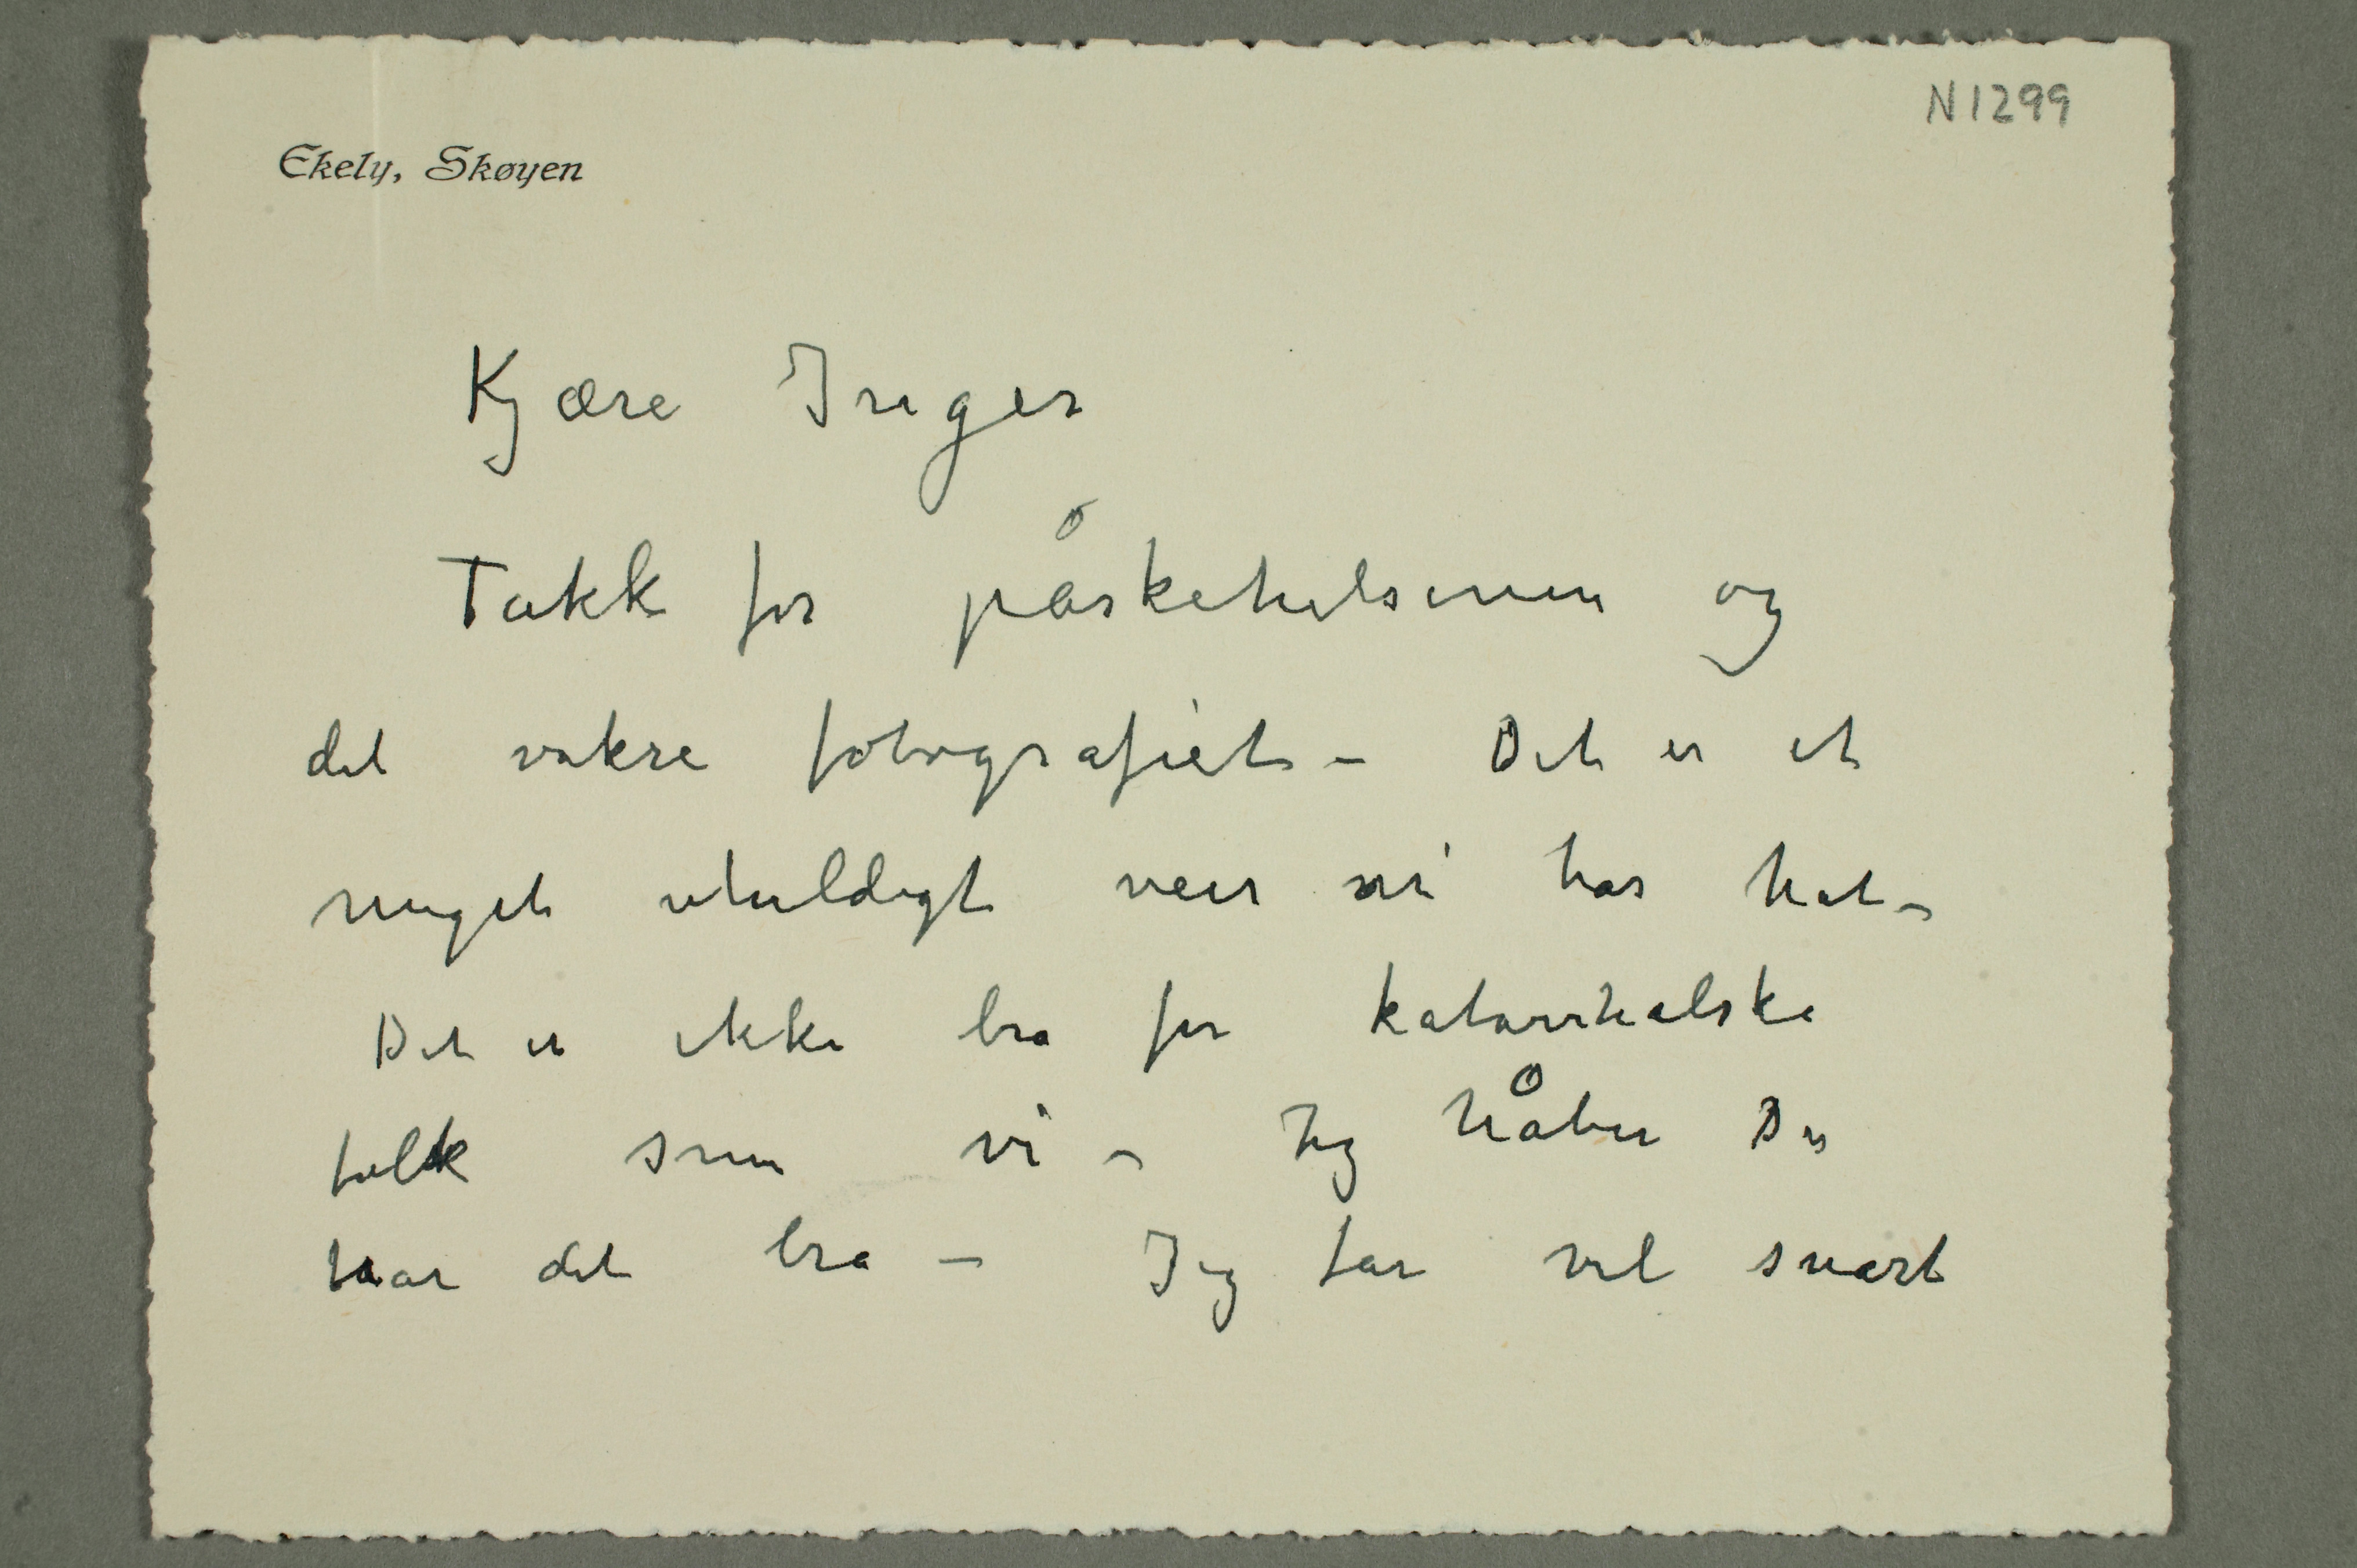 N 1299
Ekely, Skøyen
Kjære Inger
Takk for påskehilsenen og
det vakre fotografiet – Det er et
meget uheldigt veir vi har hat –
Det er ikke bra for katarrhalske
folk som vi – Jeg håber Du
har det bra – Jeg får vel snart